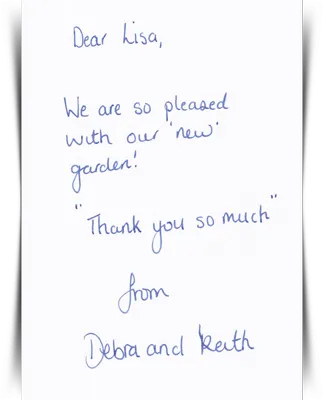 Dear Lisa,
We are so pleased
with our 'new'
garden!
"Thank you so much"
from
Debra and Keith